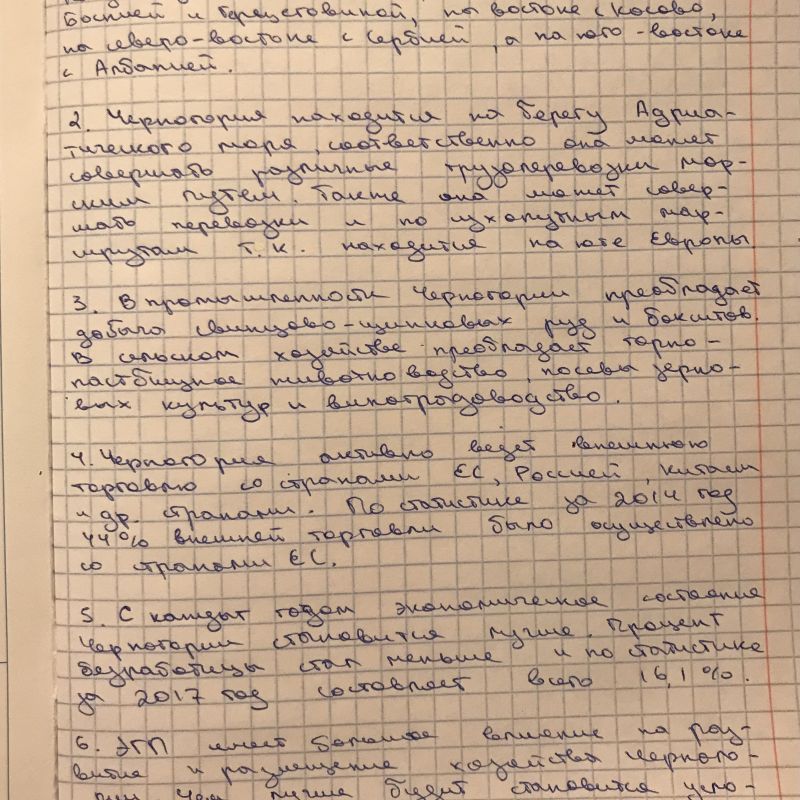 Боснией и Герцеговиной, на востоке с Косово,
на северо-востоке с Сербией, а на юго-востоке
с Албанией.
2. Черногория находится на берегу Адриа-
тического моря, соответственно она может
совершать различные грузоперевозки мор-
ским путем. Также она может совер-
шать перевозки и по сухопутным мар-
шрутам т.к. находится на юге Европы
3. В промышленности Черногории преобладает
добыча свинцово-цинковых руд и бокситов.
В сельском хозяйстве преобладает горно-
пастбищное животноводство, посевы зерно-
вых культур и виноградоводство.
4. Черногория активно ведет внешнюю
торговлю со странами ЕС, Россией, Китаем
и др. странами. По статистике за 2014 год
44% внешней торговли было осуществлено
со странами ЕС.
5. С каждым годом экономическое состояние
Черногории становится лучше. Процент
безработицы стал меньше и по статистике
за 2017 год составляет всего 16,1%.
6. ЭГП имеет большое влияние на раз-
витие и размещение хозяйства Черного-
рии Чем лучше будет становится